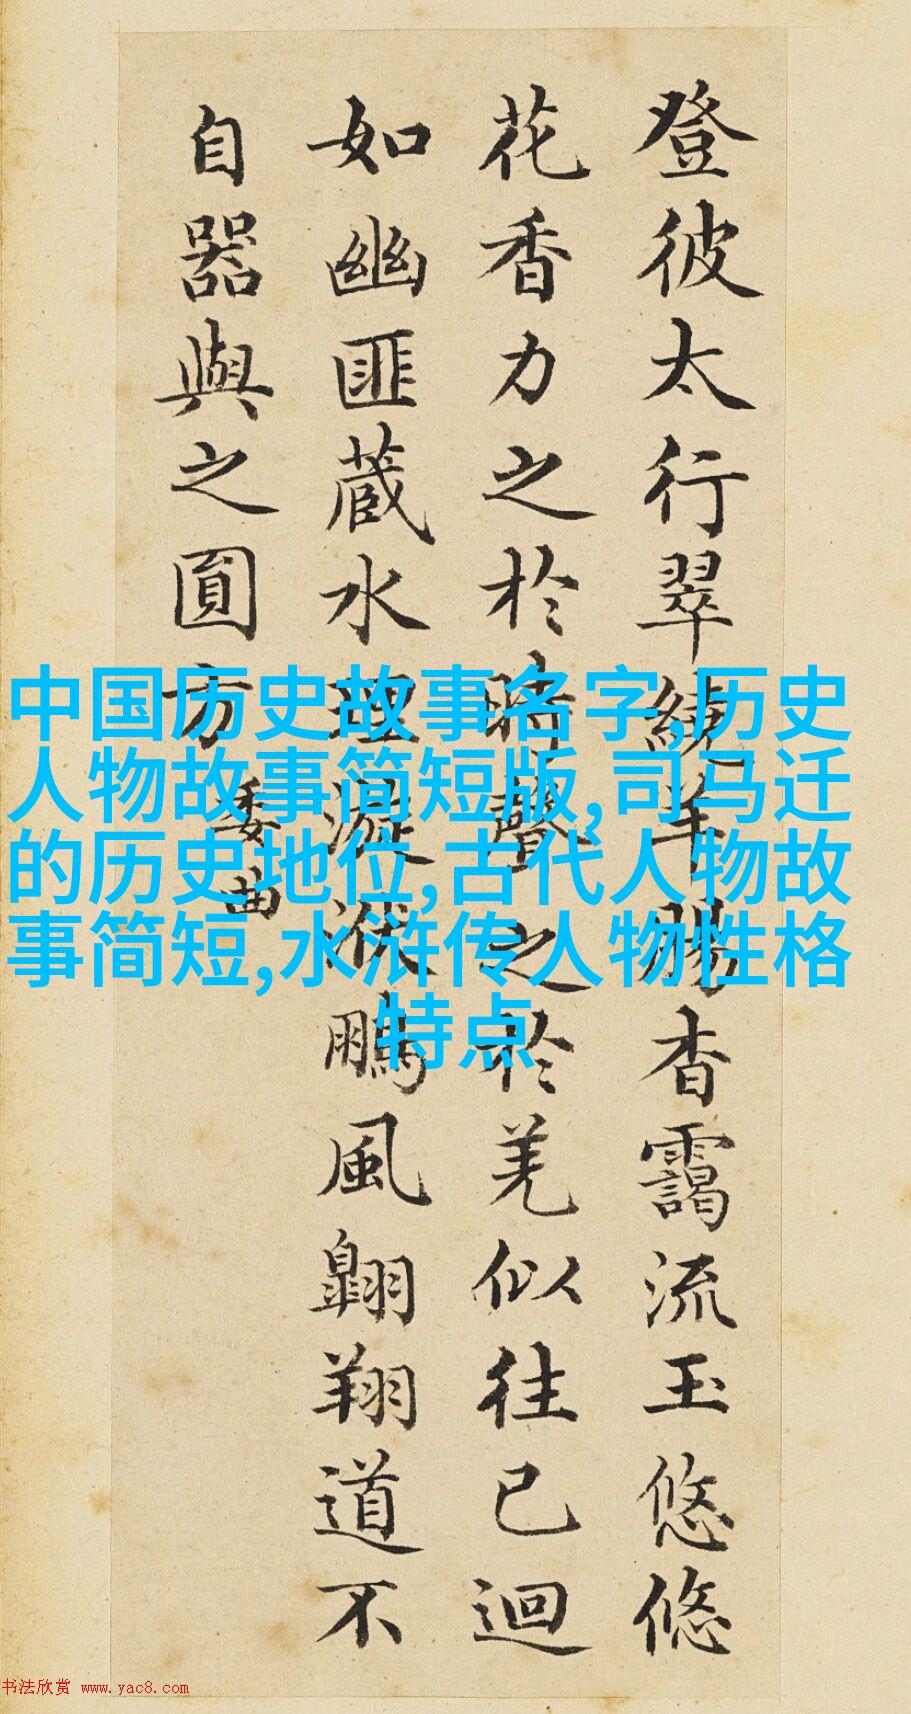 登彼太行翠繞羊腸杳靄流玉悠悠
花香力之於時聲之於羌似往已迴
如幽匪藏水理漩洑鵬風翺翔道不
自器與之圓方
委曲
中国历史故事名字,历史
人物故事简短版,司马迁
的历史地位,古代人物故
事简短,水浒传人物性格
特点
书法欣赏 www.yac8.com